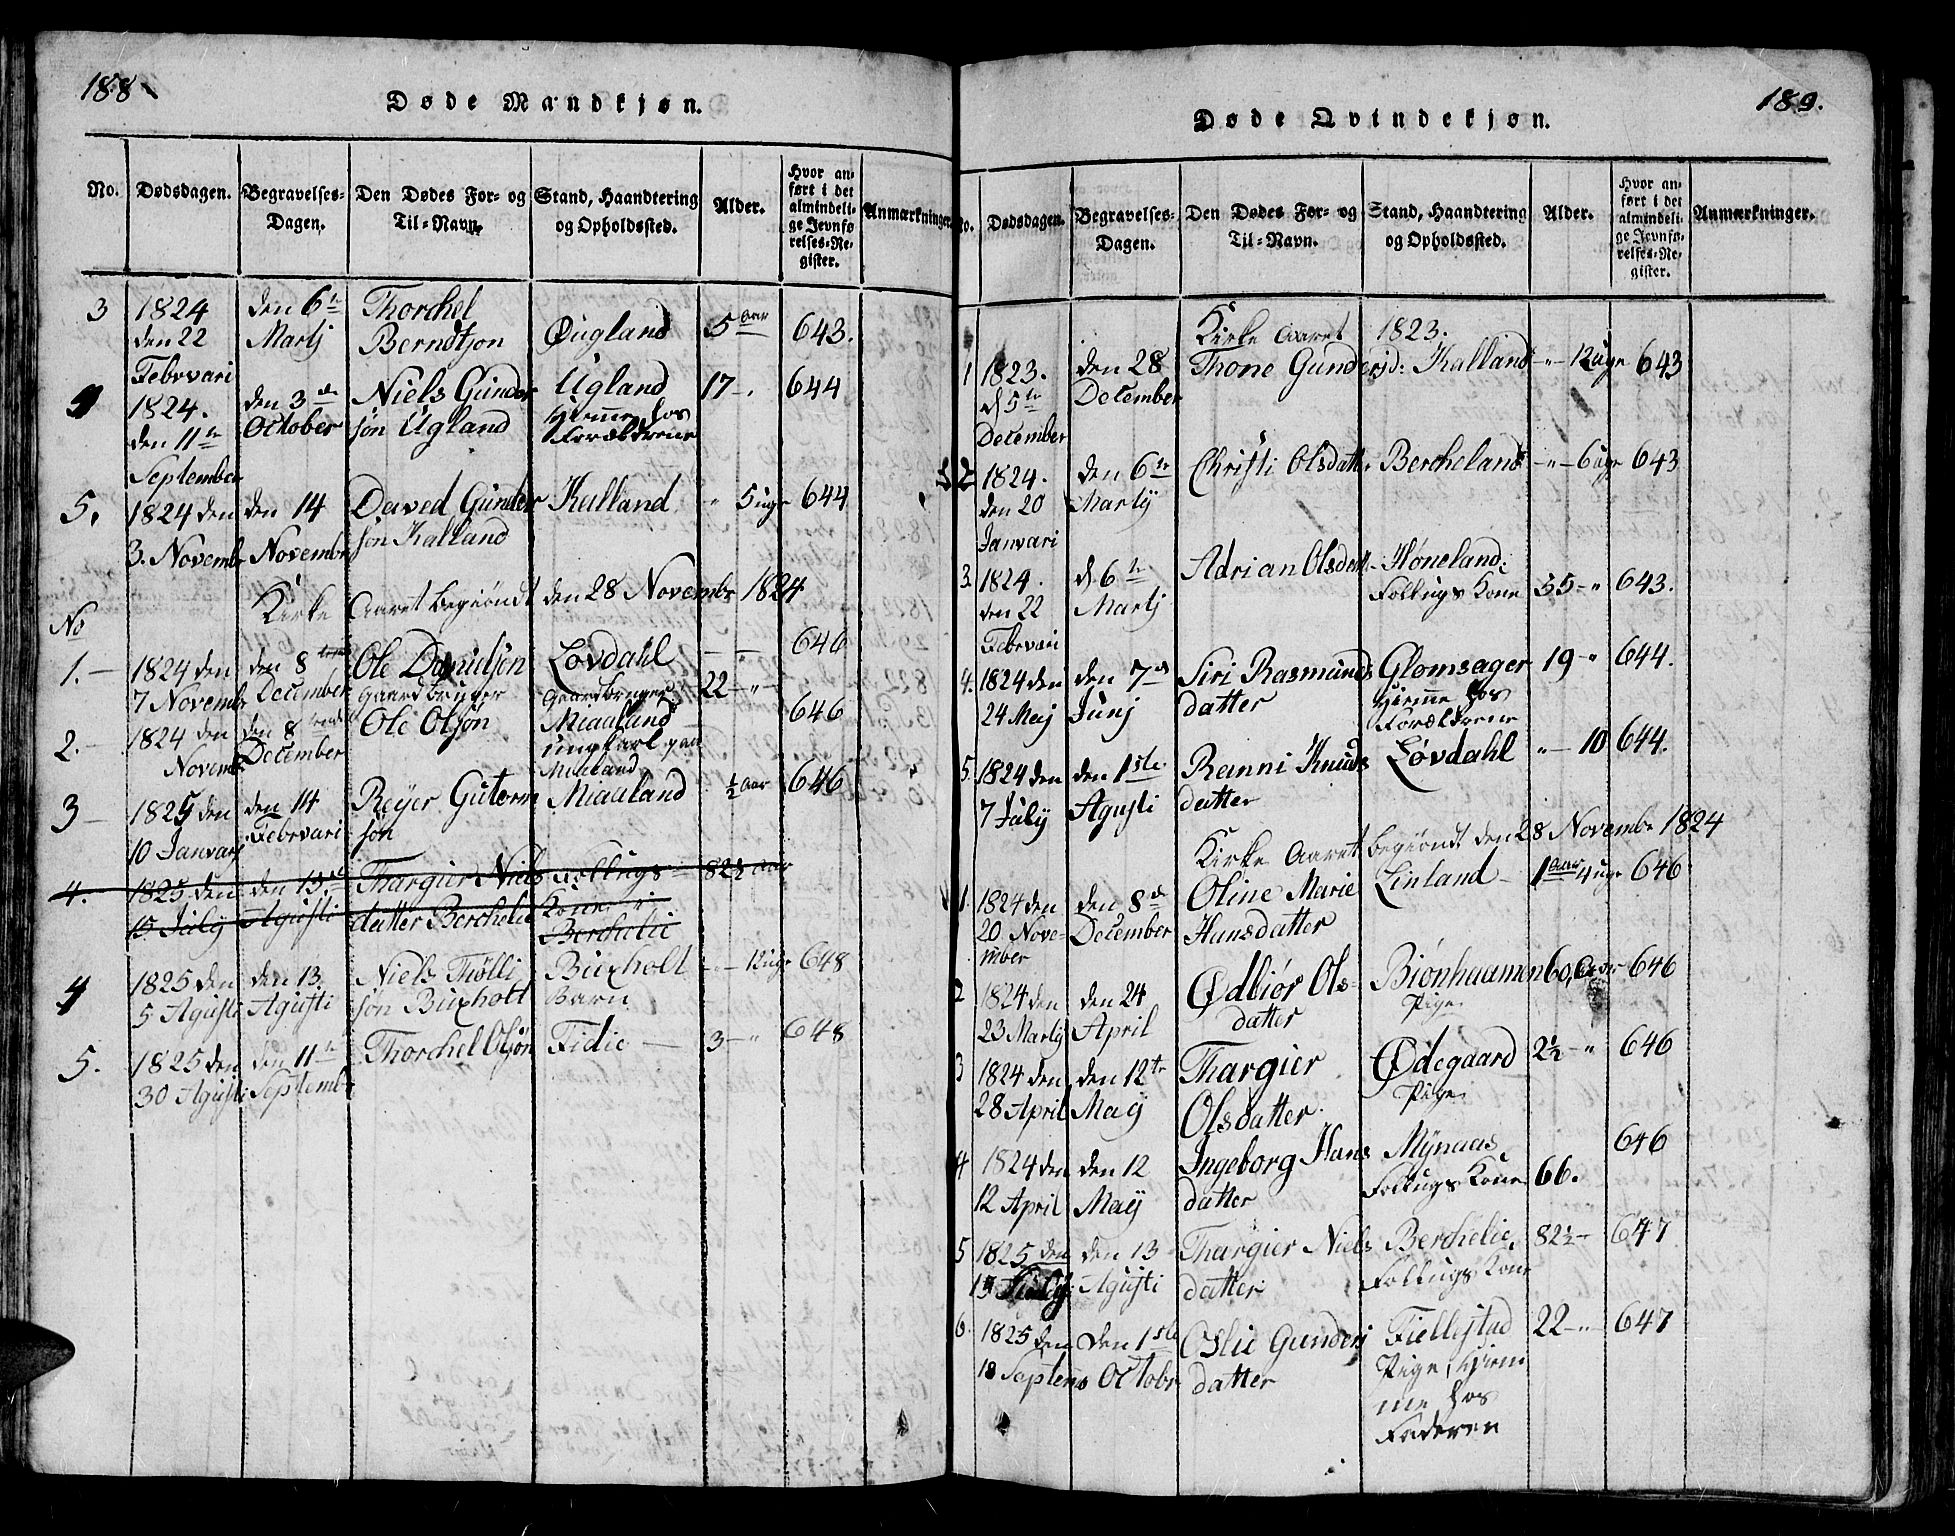 188
Døde Mandkjøn.
No. Dødsdagen. Begravelses-Dagen. Den Dødes For- og Til-Navn. Stand, Haandtering og Opholdssted. Alder. Hvor anført i det almindelige Jevnførelses-Register. Anmærkninger.
3 1824 den 22 Febrvari den 6te Martj Thorchel Berndtsøn Øugland 5 aar 643.
1824. den 11te September den 3de October Niels Gundersøn Ügland Ügland Hiemme hos Forældrene 17 -. 644
5. 1824 den 3. Novembr den 14 Novembr Daved Gundersøn Kalland Kalland " 5 uge 644
Kirke Aaret begiøndt den 28 Novembr 1824
No
1. - 1824 den 7 Novembr den 8 December Ole Danielsøn Gaardbruger Løvdahl Gaardbruger 22 - " - 646
2. - 1824 den Novemb. den 8 December Ole Olsøn Miaaland ungkarl paa Miaaland 646
3 - 1825 den 10 Janvarj den 14 Febrvari Reyer Gutormsøn Miaaland ½ aar 646
4. 1825 den 15 July den 13de Agusti Thargier Nielsdatter Berchelie Follugs Kone i Berchelie 82½ aar
4 1825 den 5 Agusti den 13 Agusti Niels Thøllisøn Buxholt Buxholt Barn - 12 uge 648
5. 1825 den 30 Agusti den 11te Septembr Thorchel Olsøn Fidie - 3 - " 648
189.
Døde Qvindekjøn.
No. Dødsdagen. Begravelses-Dagen. Den Dødes For- og Til-Navn. Stand, Haandtering og Opholdssted. Alder. Hvor anført i det almindelige Jevnførelses-Register. Anmærkninger.
Kirke Aaret 1823.
1 1823. d 5te December den 28 December Thone Gundersd: Kalland " - 12 uge 643
2 1824. den 20 Janvari den 6te Martij Christi Olsdatter Bercheland - " - 6 uge 643
3. 1824. den 22 Febrvari d 6te Martj Adrian Olsdatt. Høneland: Follugs Kone 35 - " 643.
4. 1824 den 24 Maj den 7de Junj Siri Rasmundsdatter Glomsager Hiemme hos Forældrene 19 - " 644.
5. 1824 den 7 July den 1ste Agusti Ranni Knudsdatter Løvdahl " - 10 644.
Kirke Aaret begiøndt den 28 Novembr 1824
1. 1824 den 20 November den 8de December Oline Marie Hansdatter Linland - 1 aar 4 uge 646
2 1824 den 23 Martij den 24 April Ødbiør Olsdatter Biønhaamen Pige 60, Aar 646
3 1824 den 28 April den 12te Maij Thargier Olsdatter. Ødegaard Pige 2½ - " 646
4 1824 den 12 April den 12 Maij Ingeborg Hansdatter Mÿnaas, Follugs Kone 66. 646
5 1825 den 15 den 13 Agusti Thargier Nielsdatter Berchelie, Follugs Kone 82½ - 647
6. 1825 den 18 Septemb den 1ste Octobr Oslie Gundersdatter Fiellestad Pige, hiemme hos Faderen 22 - " - 647